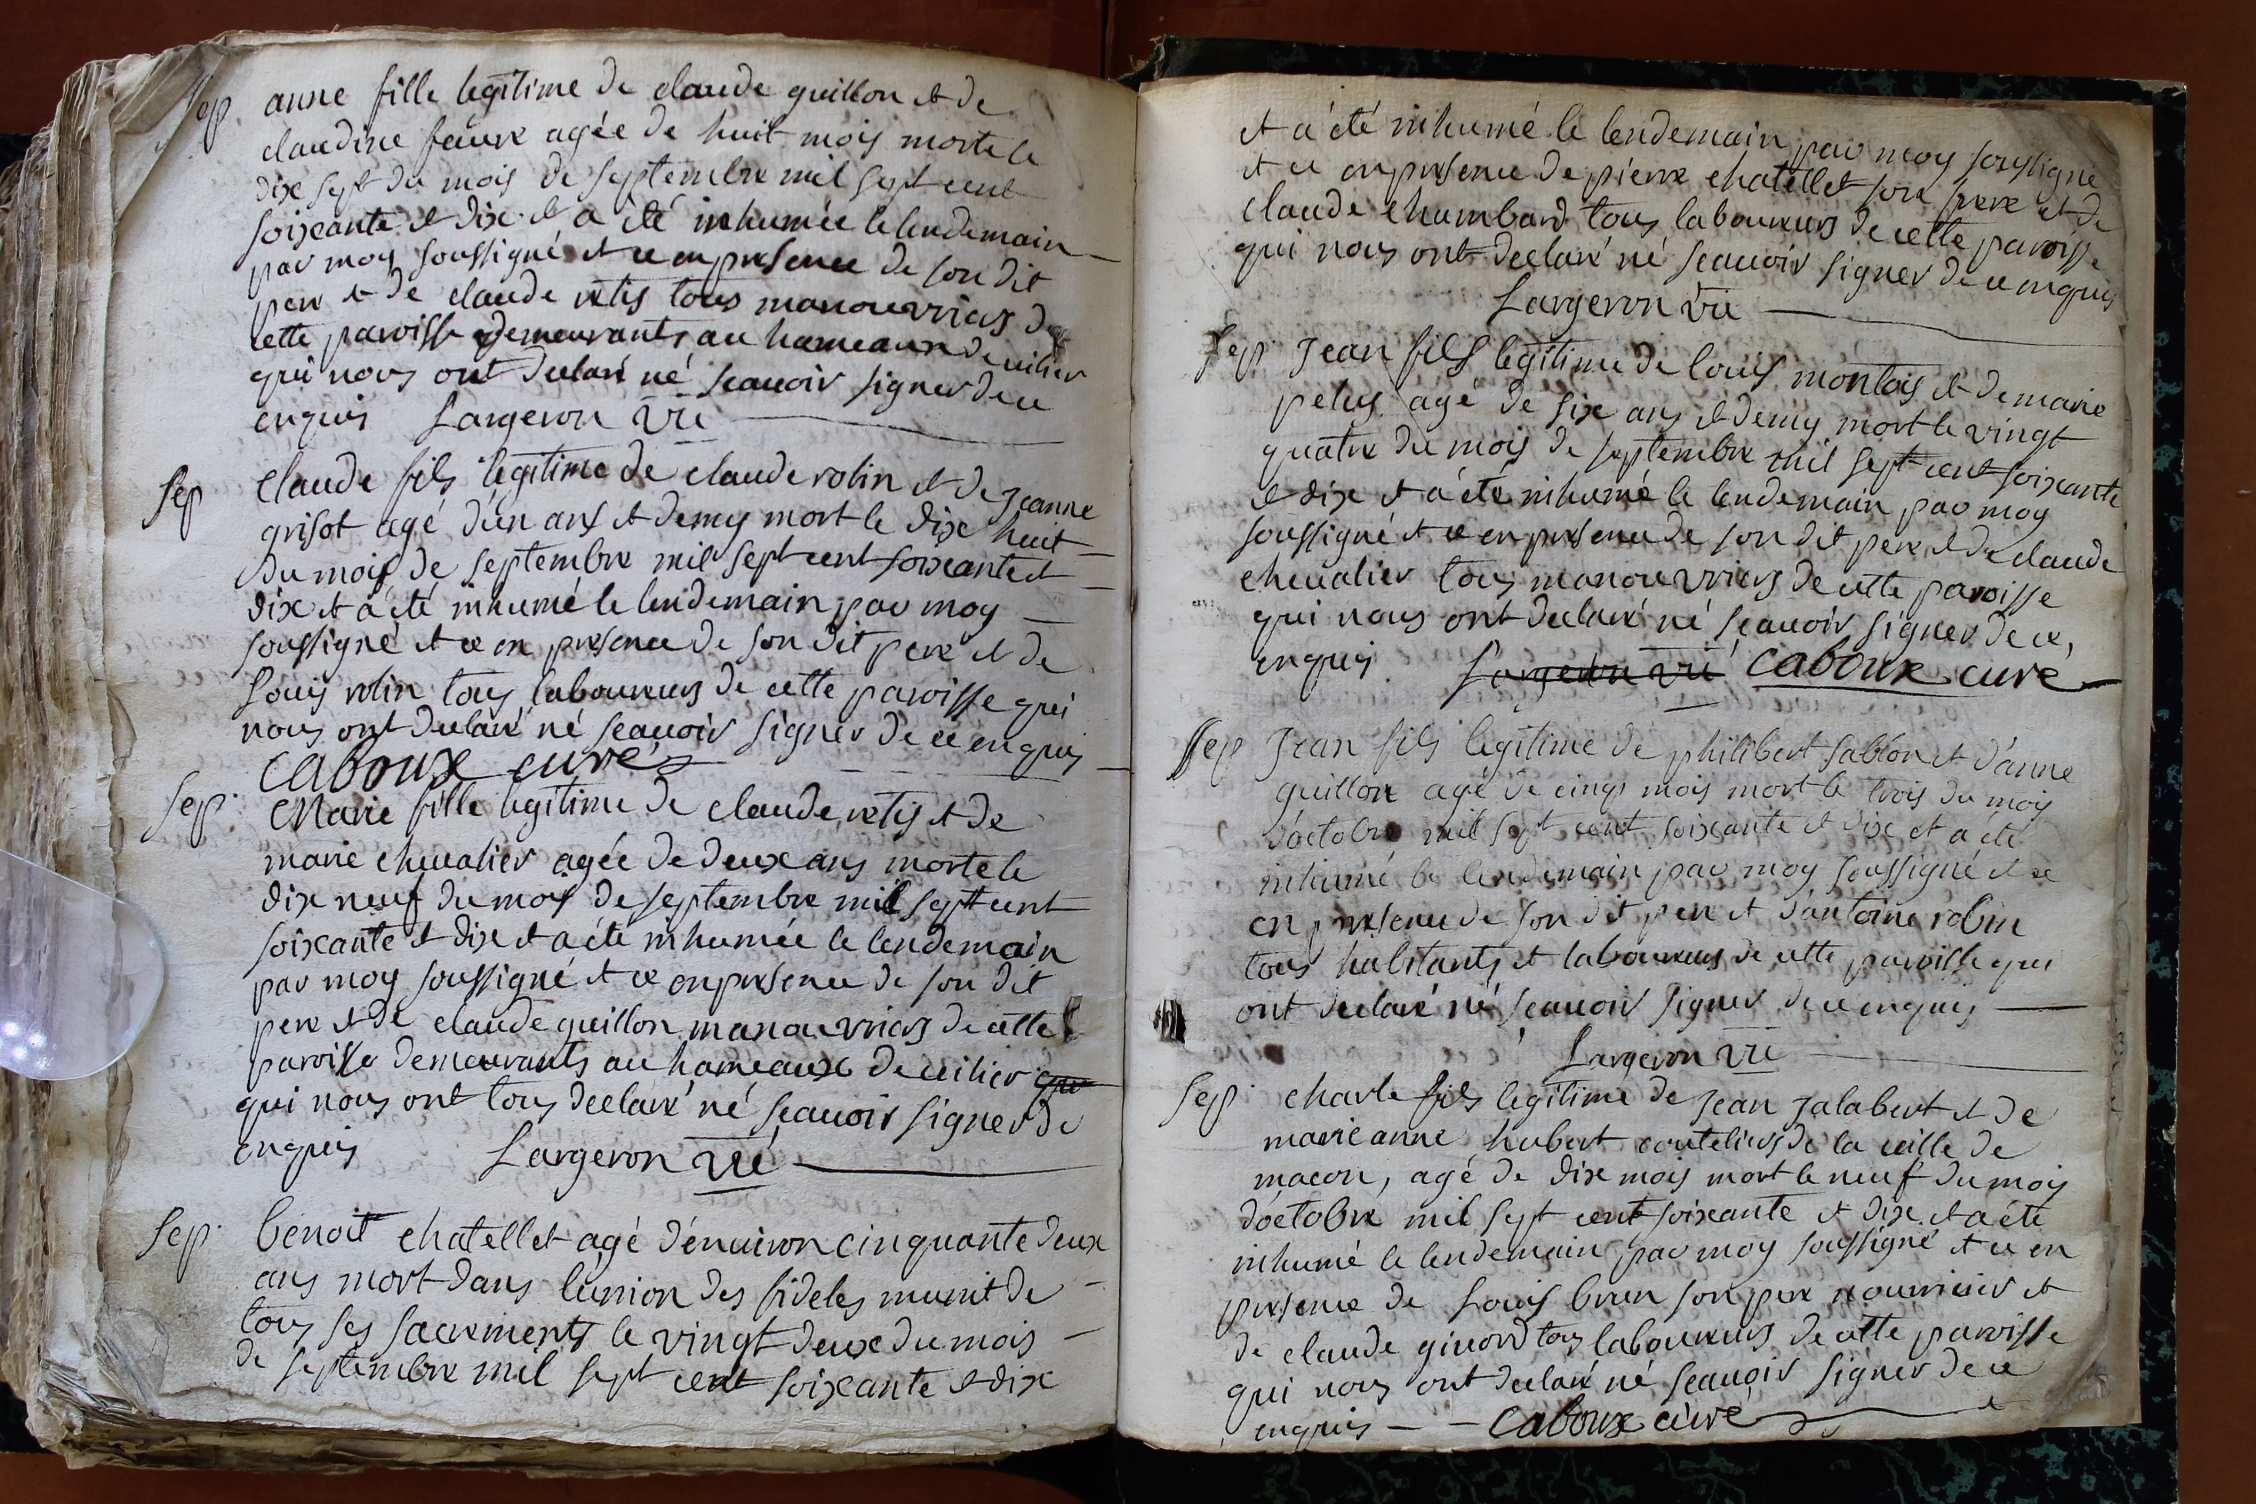 sep anne fille legitime de claude guillon et de
claudine feure agée de huit mois morte le
dix sept du mois de septembre mil sept cent
soixante et dix et a été inhumée le lendemain
par moy soussigné et ce en presence de son dit
pere et de claude retis tous manouvriers de
cette paroisse demeurants au hameaux de vilier
qui nous ont declaré né scauoir signer de ce
enquis Largeron vic
sep claude fils legitime de claude rolin et de jeanne
grisot agé d'un ans et demy mort le dix huit
du mois de septembre mil sept cent soixante et
dix et a été inhumé le lendemain par moy
soussigné et ce en presence de son dit pere et de
Louis rolin tous laboureurs de cette paroisse qui
nous ont declaré né scauoir signer de ce enquis
caboux curé
sep. Marie fille legitime de claude retis et de
marie cheualier agée de deux ans morte le
dix neuf du mois de septembre mil sept cent
soixante et dix et a été inhumée le lendemain
par moy soussigné et ce en presence de son dit
pere et de claude guillon manouvriers de cette
paroisse demeurants au hameaux de vilier qui
qui nous ont tous declaré né scauoir signer de
enquis Largeron vic
sep. benoit chatellet agé d'enuiron cinquante deux
ans mort dans l'union des fideles munit de
tous ses sacrements le vingt deux du mois
de septembre mil sept cent soixante et dix
et a été inhumé le lendemain par moy soussigné
et ce en presence de pierre chatellet son frere et de
claude chambard tous laboureurs de cette paroisse
qui nous ont declaré né scauoir signer de ce enquis
Largeron vic
sep. jean fils legitime de louis montois et de marie
pelus agé de six ans et demy mort le vingt
quatre du mois de septembre mil sept cent soixante
et dix et a été inhumé le lendemain par moy
soussigné et ce en presence de son dit pere et de claude
cheualier tous manouvriers de cette paroisse
qui nous ont declaré né scauoir signer de ce,
enquis Largeron vic caboux curé
sep jean fils legitime de philibert sablon et d'anne
guillon agé de cinq mois mort le trois du mois
d'octobre mil sept cent soixante et dix et a été
inhumé le lendemain par moy soussigné et ce
en presence de son dit pere et d'antoine robin
tous habitants et laboureurs de cette paroisse qui
ont declaré né scauoir signer de ce enquis
Largeron vic
sep. charle fils legitime de jean jalabert et de
marie anne hubert couteliers de la ville de
macon, agé de dix mois mort le neuf du mois
d'octobre mil sept cent soixante et dix et a été
inhumé le lendemain par moy soussigné et ce en
presence de Louis brun son pere nourricier et
de claude giuord tous laboureurs de cette paroisse
qui nous ont declaré né scauoir signer de ce
enquis caboux curé